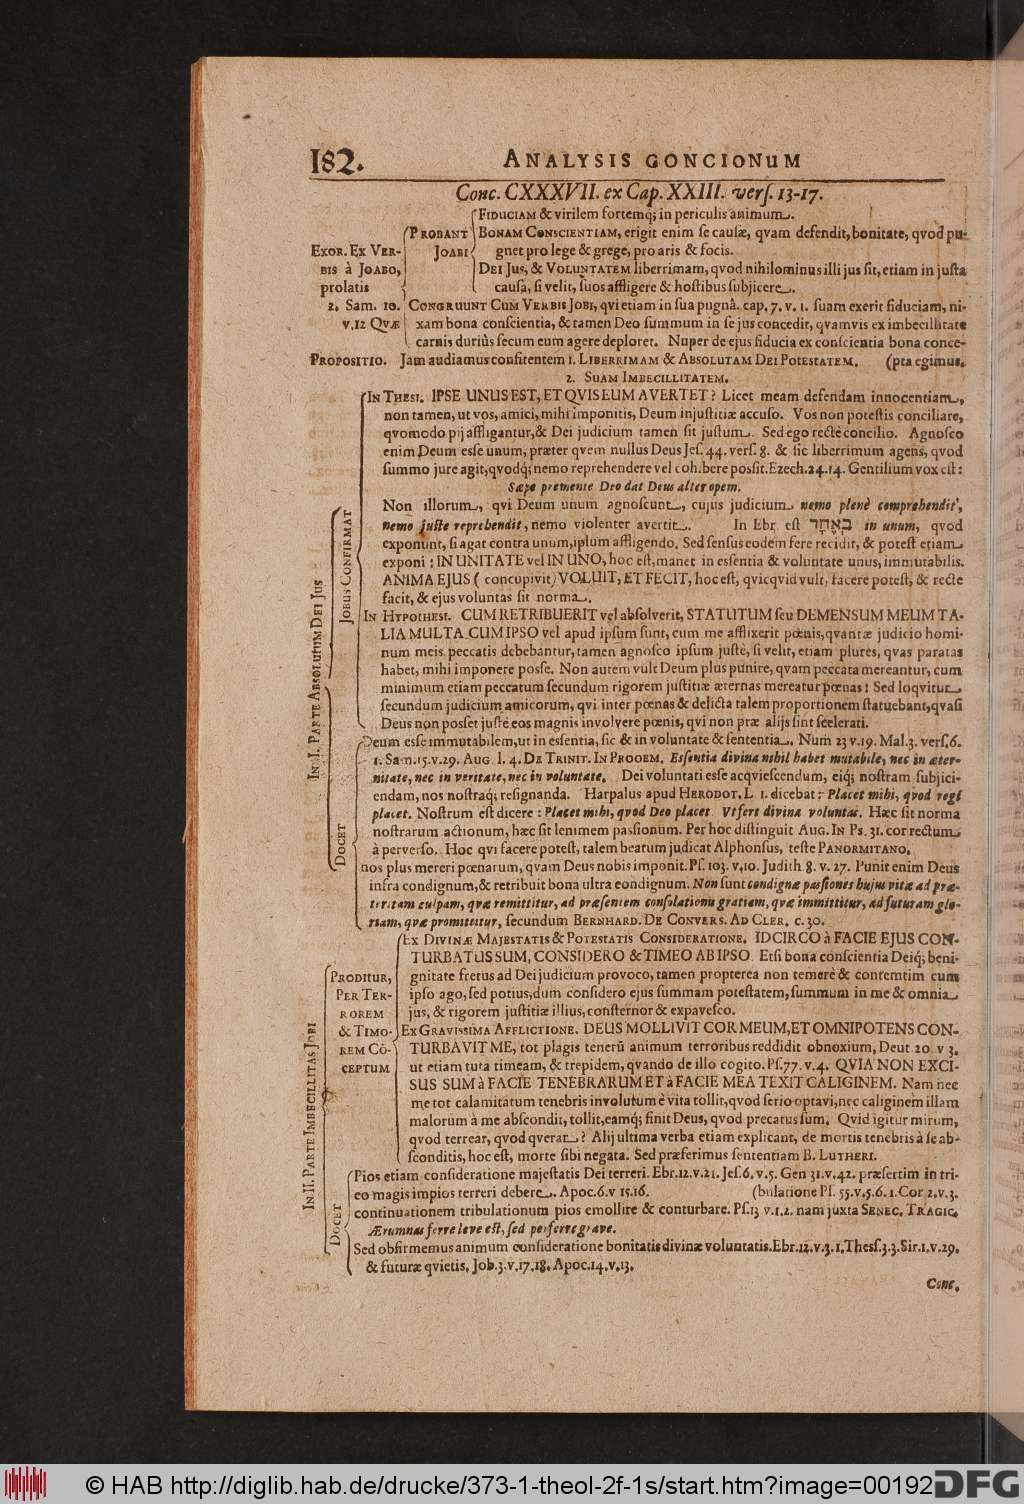 182.
ANALYSIS GONCIONUM
Conc. CXXXVII. ex Cap. XXIII. verſ. 13-17.
EXOR. EX VER-
BIS à JOABO,
prolatis
2. Sam. 10.
v.12 QVÆ
PROBANT
JOABI
FIDUCIAM & virilem fortemq; in periculis animum.
BONAM CONSCIENTIAM, erigit enim ſe cauſæ, qvam defendit, bonitate, qvod pu-
gnet pro lege & grege, pro aris & focis.
DEI JUS, & VOLUNTATEM liberrimam, qvod nihilominus illi jus ſit, etiam in juſta
cauſa, ſi velit, ſuos affligere & hoſtibus ſubjicere.
CONGRUUNT CUM VERBIS JOBI, qvi etiam in ſua pugnâ. cap. 7. v. 1. ſuam exerit fiduciam, ni-
xam bona conſcientia, & tamen Deo ſummum in ſe jus concedit, qvamvis ex imbecillitate
carnis duriùs ſecum eum agere deploret. Nuper de ejus fiducia ex conſcientia bona conce-
PROPOSITIO. Jam audiamus confitentem 1. LIBERRIMAM & ABSOLUTAM DEI POTESTATEM. (pta egimus.
2. SUAM IMBECILLITATEM.
IN I. PARTE ABSOLUTUM DEI JUS
JOBUS CONFIRMAT
IN THESI. IPSE UNUS EST, ET QVIS EUM AVERTET? Licet meam defendam innocentiam,
non tamen, ut vos, amici, mihi imponitis, Deum injuſtitiæ accuſo. Vos non poteſtis conciliare,
qvomodo pij affligantur, & Dei judicium tamen ſit juſtum. Sed ego rectè concilio. Agnoſco
enim Deum eſſe unum, præter qvem nullus Deus Jeſ. 44. verſ. 8. & ſic liberrimum agens, qvod
ſummo jure agit, qvodq; nemo reprehendere vel cohibere poſſit. Ezech. 24. 14. Gentilium vox eſt:
Sæpe premente Deo dat Deus alter opem.
Non illorum, qvi Deum unum agnoſcunt, cujus judicium nemo plenè comprehendit,
nemo juſte reprehendit, nemo violenter avertit. In Ebr. eſt בְאֶחָד in unum, qvod
exponunt, ſi agat contra unum, ipſum affligendo. Sed ſenſus eodem fere recidit, & poteſt etiam
exponi: IN UNITATE vel IN UNO, hoc eſt, manet in eſſentia & voluntate unus, immutabilis.
ANIMA EJUS (concupivit) VOLUIT, ET FECIT, hoc eſt, qvicqvid vult, facere poteſt, & recte
facit, & ejus voluntas ſit norma.
IN HYPOTHESI. CUM RETRIBUERIT vel abſolverit, STATUTUM ſeu DEMENSUM MEUM TA-
LIA MULTA CUM IPSO vel apud ipſum ſunt, cum me afflixerit pœnis, qvantæ judicio homi-
num meis peccatis debebantur, tamen agnoſco ipſum juſtè, ſi velit, etiam plures, qvas paratas
habet, mihi imponere poſſe. Non autem vult Deum plus punire, qvam peccata mereantur, cum
minimum etiam peccatum ſecundum rigorem juſtitiæ æternas mereatur pœnas: Sed loqvitur
ſecundum judicium amicorum, qvi inter pœnas & delicta talem proportionem ſtatuebant, qvaſi
Deus non poſſet juſtè eos magnis involvere pœnis, qvi non præ alijs ſint ſcelerati.
DOCET
Deum eſſe immutabilem, ut in eſſentia, ſic & in voluntate & ſententia. Num 23 v. 19. Mal. 3. verſ. 6.
1. Sam. 15. v. 29. AUG. l. 4. DE TRINIT. IN PROOEM. Eſſentia divina nihil habet mutabile, nec in æter-
nitate, nec in veritate, nec in voluntate. Dei voluntati eſſe acqvieſcendum, eiq; noſtram ſubjici-
endam, nos noſtraq; reſignanda. Harpalus apud HERODOT. L. 1. dicebat: Placet mihi, qvod regi
placet. Noſtrum eſt dicere: Placet mihi, qvod Deo placet. Ut fert divina voluntas. Hæc ſit norma
noſtrarum actionum, hæc ſit lenimem paſſionum. Per hoc diſtinguit AUG. IN PS. 31. cor rectum
à perverſo. Hoc qvi facere poteſt, talem beatum judicat Alphonſus, teſte PANORMITANO.
nos plus mereri pœnarum, qvam Deus nobis imponit. Pſ. 103. v. 10. Judith 8. v. 27. Punit enim Deus
infra condignum, & retribuit bona ultra condignum. Non ſunt condignæ paſſiones hujus vitæ ad præ-
teritam culpam, qvæ remittitur, ad præſentem conſolationis gratiam, qvæ immittitur, ad futuram glo-
riam, qvæ promittitur, ſecundum BERNHARD. DE CONVERS. AD CLER. c. 30.
IN II. PARTE IMBECILLITAS JOBI
PRODITUR,
PER TER-
ROREM
& TIMO-
REM CÕ-
CEPTUM
EX DIVINÆ MAJESTATIS & POTESTATIS CONSIDERATIONE. IDCIRCO à FACIE EJUS CON-
TURBATUS SUM, CONSIDERO & TIMEO AB IPSO. Etſi bona conſcientia Deiq; beni-
gnitate fretus ad Dei judicium provoco, tamen propterea non temerè & contemtim cum
ipſo ago, ſed potius, dum conſidero ejus ſummam poteſtatem, ſummum in me & omnia
jus, & rigorem juſtitiæ illius, conſternor & expaveſco.
EX GRAVISSIMA AFFLICTIONE. DEUS MOLLIVIT COR MEUM, ET OMNIPOTENS CON-
TURBAVIT ME, tot plagis tenerũ animum terroribus reddidit obnoxium, Deut. 20 v 3.
ut etiam tuta timeam, & trepidem, qvando de illo cogito. Pſ. 77. v. 4. QVIA NON EXCI-
SUS SUM à FACIE TENEBRARUM ET à FACIE MEA TEXIT CALIGINEM. Nam nec
me tot calamitatum tenebris involutum è vita tollit, qvod ſerio optavi, nec caliginem illam
malorum à me abſcondit, tollit, eamq; finit Deus, qvod precatus ſum. Qvid igitur mirum,
qvod terrear, qvod qverar? Alij ultima verba etiam explicant, de mortis tenebris à ſe ab-
ſconditis, hoc eſt, morte ſibi negata. Sed præferimus ſententiam B. LUTHERI.
DOCET
Pios etiam conſideratione majeſtatis Dei terreri. Ebr. 12. v. 21. Jeſ. 6. v. 5. Gen 31. v. 42. præſertim in tri-
eo magis impios terreri debere. Apoc. 6. v 15. 16. (bulatione Pſ. 55. v. 5. 6. 1. Cor 2. v. 3.
continuationem tribulationum pios emollire & conturbare. Pſ. 13 v. 1. 2. nam juxta SENEC. TRAGIC.
Ærumnas ferre leve eſt, ſed perferre grave.
Sed obfirmemus animum conſideratione bonitatis divinæ voluntatis. Ebr. 12. v. 3. 1. Theſſ. 3. 3. Sir. 1. v. 29.
& futuræ qvietis, Job. 3. v. 17. 18. Apoc. 14. v. 13.
Conc.
© HAB http://diglib.hab.de/drucke/373-1-theol-2f-1s/start.htm?image=00192
DFG